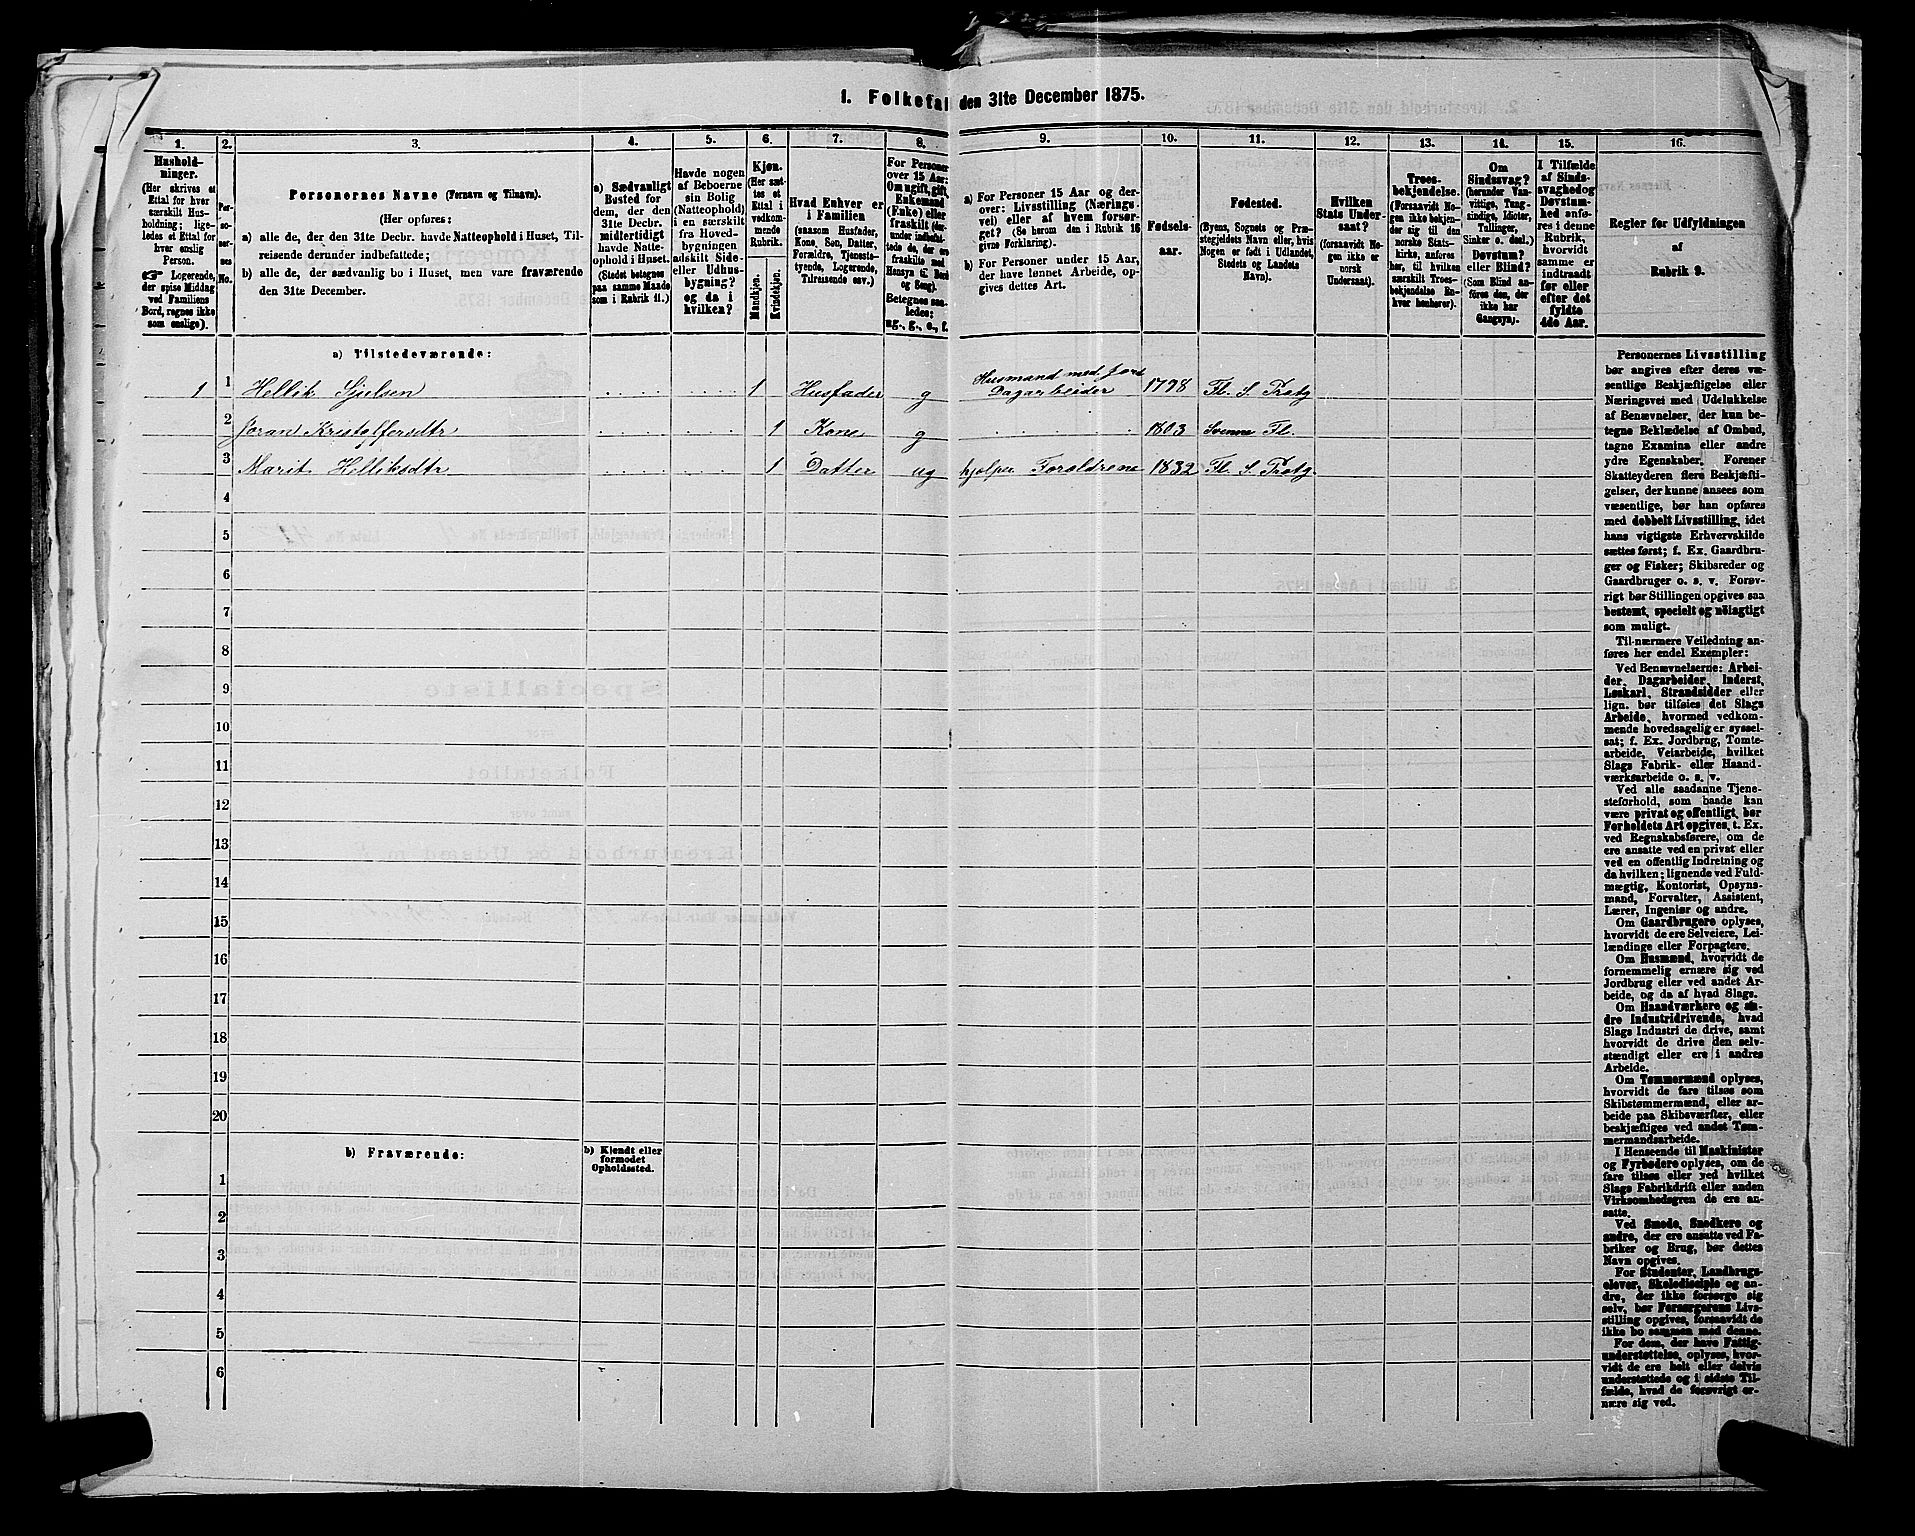 1. Folketal den 31te December 1875.
1. 2. 3. 4. 5. 6. 7. 8. 9. 10. 11. 12. 13. 14. 15. 16.
Hushold-
ninger.
(Her skrives et
Ettal for hver
særskilt Hus-
holdning; lige-
ledes et Ettal for
hver enslig
Person.
Logerende,
der spise Middag
ved Familiens
Bord, regnes ikke
som enslige).
Per-
so-
ner-
nes
No.
Personernes Navne (Fornavn og Tilnavn).
(Her opføres:
a) alle de, der den 31te Decbr. havde Natteophold i Huset, Til-
reisende derunder indbefattede;
b) alle de, der sædvanlig bo i Huset, men vare fraværende
den 31te December.
a) Sædvanligt
Bosted for
dem, der den
31te Decbr.
midlertidigt
havde Natte-
ophold i Huset.
(Stedet betegnes
paa samme Maade
som i Rubrik 11.)
Havde nogen
af Beboerne
sin Bolig
(Natteophold)
i en særskilt
fra Hoved-
bygningen
adskilt Side-
eller Udhus-
bygning?
og da i
hvilken?
Kjøn.
(Her sæt-
tes et
Ettal i
vedkom-
mende
Rubrik.
Mandkjøn.
Kvindekjøn.
Hvad Enhver er
i Familien
(saasom Husfader,
Kone, Søn, Datter,
Forældre, Tjeneste-
tyende, Logerende,
Tilreisende osv.)
For Personer
over 15 Aar:
Om ugift, gift,
Enkemand
(Enke) eller
fraskilt (der-
under indbefat-
tede de, der ere
fraskilte med
Hensyn til Bord
og Seng).
Betegnes saa-
ledes:
ug., g., e., f.
a) For Personer 15 Aar og der-
over: Livsstilling (Nærings-
vei) eller af hvem forsør-
get? (Se herom den i Rubrik 16
givne Forklaring).
b) For Personer under 15 Aar,
der have lønnet Arbeide, op-
gives dettes Art.
Fødsels-
aar.
Fødested.
(Byens, Sognets og Præ-
stegjeldets Navn eller, hvis
Nogen er født i Udlandet,
Stedets og Landets
Navn).
Hvilken
Stats Under-
saat?
(forsaavidt No-
gen ikke er
norsk
Undersaat).
Troes-
bekjendelse.
(Forsaavidt No-
gen ikke bekjen-
der sig til den
norske Stats-
kirke, anføres
her, til hvilken
særskilt Troes-
bekjendelse En-
hver henhører).
Om
Sindssvag?
(herunder Van-
vittige, Tung-
sindige, Idioter,
Tullinger,
Sinker o. desl.)
Døvstum?
eller Blind?
(Som Blind an-
føres den, der
ikke har
Gangsyn).
I Tilfælde
af Sinds-
svaghed og
Døvstum-
hed anfø-
res i denne
Rubrik,
hvorvidt
samme er
indtraadt
før eller
efter det
fyldte
4de Aar.
Regler for Udfyldningen
af
Rubrik 9.
a) Tilstedeværende:
1 1 Hellik Gjulsen 1 Husfader g Husmand med Jord Dagarbeider 1798 Fl. S. Trøtg
2 Joran Kristoffersdtr 1 Kone g 1803 Svenne Fl.
3 Marit Helliksdtr 1 Datter ug hjelper Foreldrene 1832 Fl. S. Trøtg.
4
5
6
7
8
9
10
11
12
13
14
15
16
17
18
19
20
b) Fraværende:
b) Kjendt eller
formodet
Opholdssted.
1
2
3
4
5
6
Personernes Livsstilling
bør angives efter deres væ-
sentlige Beskjæftigelse eller
Næringsvei med Udelukkelse
af Benævnelser, der kun be-
tegne Beklædelse af Ombud,
tagne Examina eller andre
ydre Egenskaber. Forener
Skatteyderen flere Beskjæfti-
gelser, der kunne ansees som
væsentlige, bør han opføres
med dobbelt Livsstilling, idet
hans vigtigste Erhvervskilde
sættes først; f. Ex. Gaardbru-
ger og Fisker; Skibsreder og
Gaardbruger o. s. v. Forøv-
rigt bør Stillingen opgives saa
bestemt, specielt og nøiagtigt
som muligt.
Til nærmere Veiledning an-
føres her endel Exempler:
Ved Benævnelserne: Arbei-
der, Dagarbeider, Inderst,
Løskarl, Strandsidder eller
lign. bør tilføies det Slags
Arbeide, hvormed vedkom-
mende hovedsagelig er syssel-
sat; f. Ex. Jordbrug, Tomte-
arbeide, Veiarbeide, hvilket
Slags Fabrik- eller Haand-
værksarbeide o. s. v.
Ved alle saadanne Tjene-
steforhold, som baade kan
være privat og offentligt, bør
Forholdets Art opgives, t. Ex.
ved Regnskabsførere, om de
ere ansatte ved en privat eller
ved en offentlig Indretning og
da hvilken; lignende ved Fuld-
mægtig, Kontorist, Opsyns-
mand, Forvalter, Assistent,
Lærer, Ingeniør og andre.
Om Gaardbrugere oplyses,
hvorvidt de ere Selveiere, Lei-
lændinge eller Forpagtere.
Om Husmænd, hvorvidt de
fornemmelig ernære sig ved
Jordbrug eller ved andet Ar-
beide, og da af hvad Slags.
Om Haandværkere og an-
dre Industridrivende, hvad
Slags Industri de drive, samt
hvorvidt de drive den selv-
stændigt eller ere i andres
Arbeide.
Om Tømmermænd oplyses,
hvorvidt de fare tilsøs som
Skibstømmermænd, eller ar-
beide paa Skibsværfter, eller
beskjæftiges ved andet Tøm-
mermandsarbeide.
I Henseende til Maskinister
og Fyrbødere oplyses, om de
fare tilsøs eller ved hvilket
Slags Fabrikdrift eller anden
Virksomhedsgren de ere an-
satte.
Ved Smede, Snedkere og
andre, der ere ansatte ved Fa-
briker og Brug, bør dettes
Navn opgives.
For Studenter, Landbrugs-
elever, Skoledisciple og an-
dre, der ikke forsørge sig
selv, bør Forsørgerens Livs-
stilling opgives, forsaavidt de
ikke bo sammen med denne.
For dem, der have Fattig-
understøttelse, oplyses, hvor-
vidt de ere helt eller delvis
understøttede og i sidste Til-
fælde, hvad de forøvrigt er-
nære sig ved.